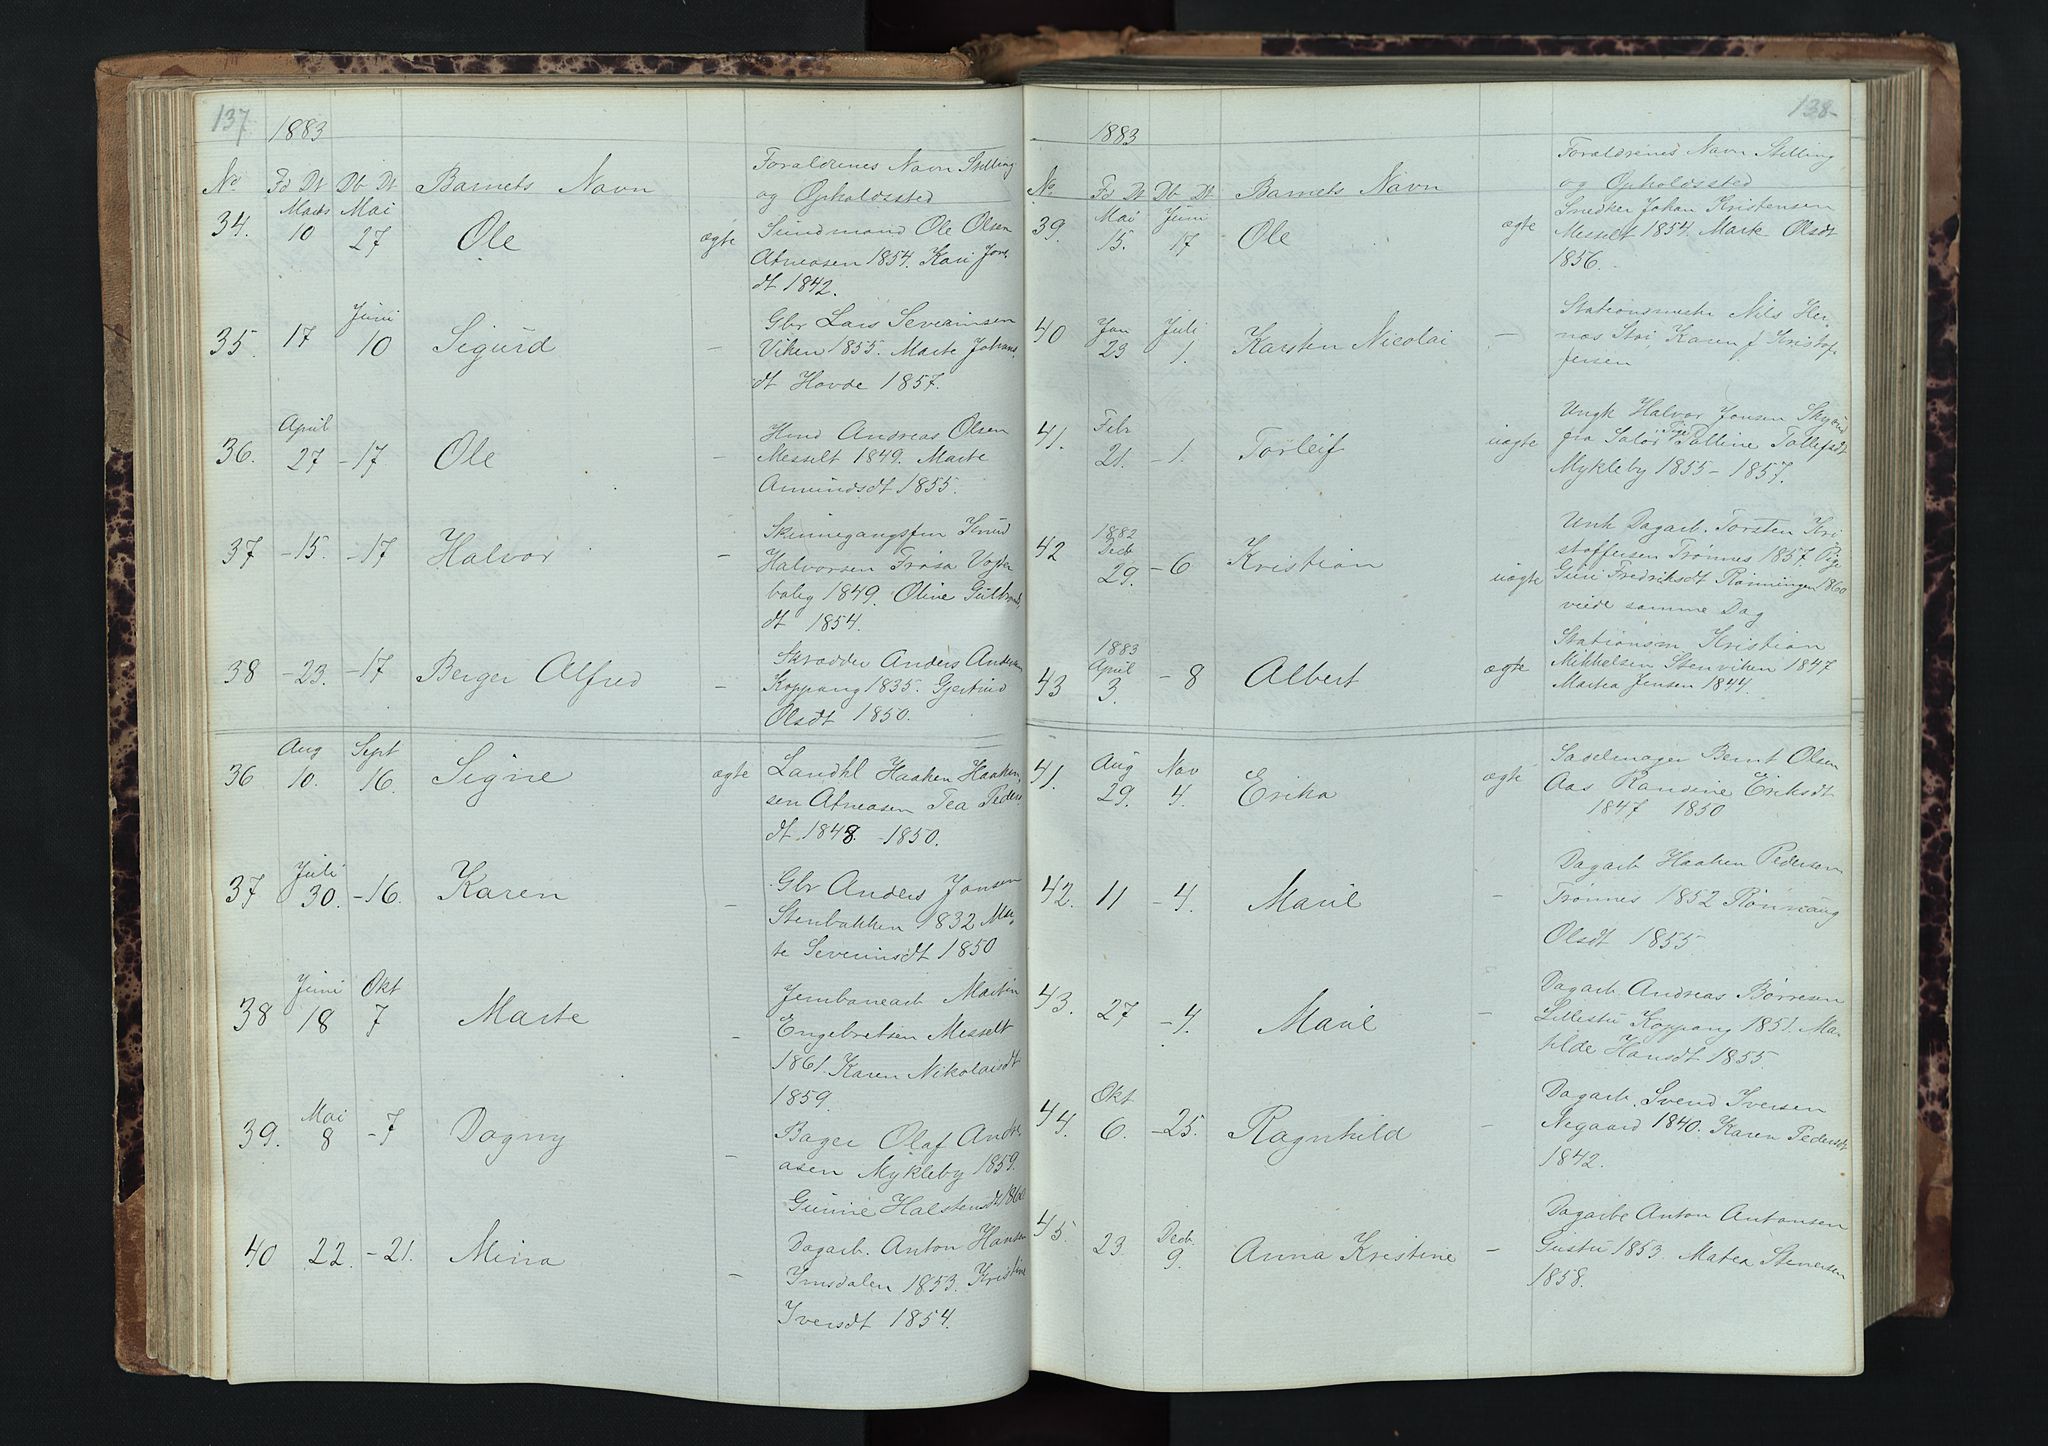 137
1883
No Fd Dt Db Dt Barnets Navn
Forældrenes Navn Stilling
og Opholdssted
34. Marts 10 Mai 27 Ole ægte
Sundmand Ole Olsen
Atneosen 1854. Kari Jons
dt 1842.
35. 17 Juni 10 Sigurd –
Gbr Lars Severinsen
Viken 1855. Marte Johans
dt Hovde 1857.
36. April 27 – 17 Ole –
Hmd Andreas Olsen
Messelt 1849. Marte
Amundsdt 1855.
37 – 15. – 17 Halvor –
Knud
Halvorsen Frøsa Vogter
bolig 1849. Oline Gulbrands
dt 1854.
38 – 23. – 17 Berger Alfred –
Skrædder Anders Andersen
Koppang 1835. Gjertrud
Olsdt 1850.
36 Aug 10. Sept 16. Signe ægte
Landhl Haaken Haaken
sen Atneosen Tea Peders
dt 1848. – 1850.
37 Juli 30. – 16. Karen –
Gbr Anders Jonsen
Stenbakken 1832 Mar
te Severinsdt 1850
38 Juni 18 Okt 7 Marte –
Jernbanearb Martin
Engebretsen Messelt
1861. Karen Nikolaisdt
1859.
39. Mai 8 – 7 Dagny –
Bager Olaf Andre
asen Mykleby 1859.
Gunne Halstensdt
40 22. – 21. Mina –
Dagarb. Anton Hansen
Imsdalen 1853. Kristine
Iversdt 1854.
138
1883
No Fd Dt Db Dt Barnets Navn
Forældrenes Navn Stilling
og Opholdssted
39. Mai 15. Juni 17 Ole ægte
Snedker Johan Kristensen
Messelt 1854. Marte Olsdt
1856.
40 Jan 23 Juli 1. Karsten Nicolai –
Stationsmester Nils Her-
nos Stai, Karen f Kristof
fersen
41. Febr 21. – 1. Torleif uægte
Ungk Halvor Jonsen
fra Salør Pige Palline Tollefsdt
Mykleby 1855 – 1857.
42 1882 Decb 29. – 6 Kristian uægte
Unk Dagarb. Torsten Kri
stoffersen Trønnes 1857. Pige
Guri Fredriksdt Rønningen 1860
viede samme Dag
43 1883 April 3. – 8 Albert ægte
Stationsm Kristian
Mikkelsen Stenviken 1847
Martea Jensen 1844.
41. Aug 29. Nov 4. Erika ægte
Sadelmager Bernt Olsen
Aas Randine Eriksdt
1847 1850
42. 11 – 4. Marie –
Dagarb Haaken Pedersen
Trønnes 1852 Rønnaug
Olsdt 1855.
43. 27 – 4. Marie –
Dagarb. Andreas Børresen
Lillestu Koppang 1851. Ma-
tilde Hansdt 1855.
44. Okt 6. – 25. Ragnhild –
Dagarb. Svend Iversen
Negaard 1840. Karen Pedersdt
1842.
45. 23. Decb. 9. Anna Kristine –
Dagarbe Anton Antonsen
Gustu 1853. Matea Stenersen
1858.